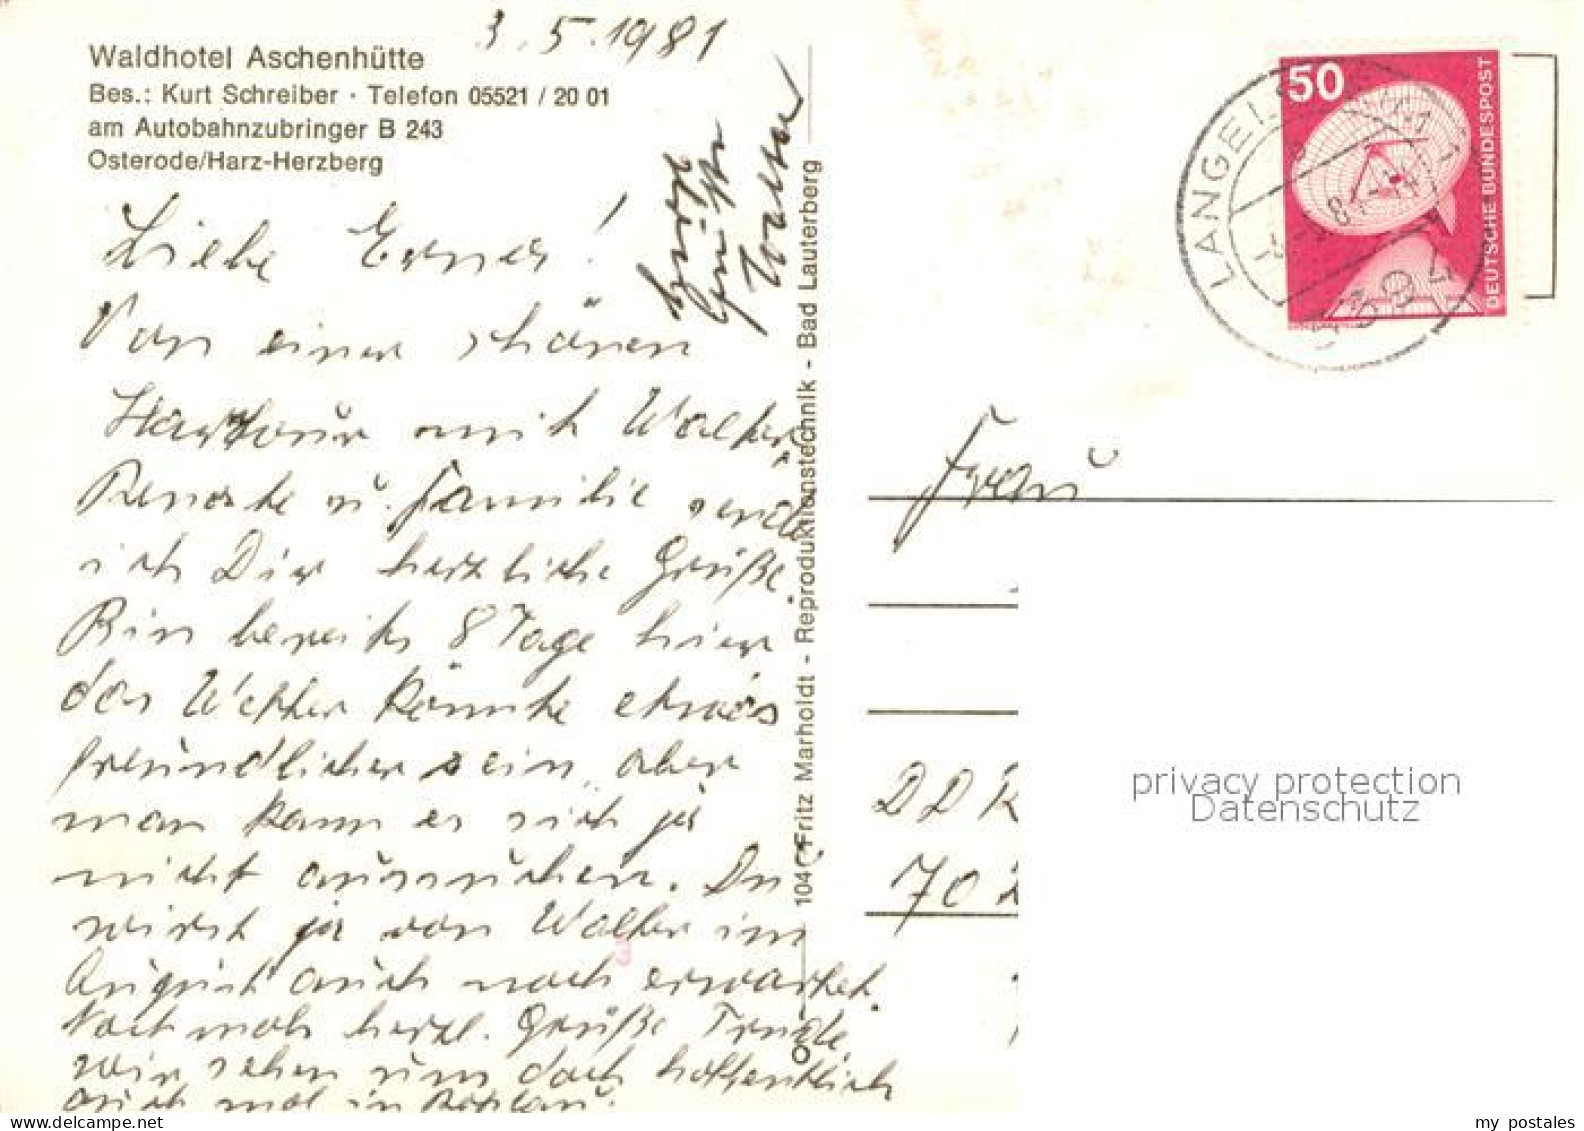 3.5.1981
Waldhotel Aschenhütte
Bes.: Kurt Schreiber · Telefon 05521 / 20 01
am Autobahnzubringer B 243
Osterode/Harz-Herzberg
Liebe Erna!
Von einer schönen
Harztour mit Walter,
Renate u. Familie sende
ich Dir herzliche Grüße.
Bin bereits 8 Tage hier
das Wetter könnte etwas
freundlicher sein, aber
man kann es sich ja
nicht aussuchen. Du
wirst ja von Walter im
August auch noch erwartet.
Nochmals herzl. Grüße Trude.
wir sehen uns doch hoffentlich
auch mal in
Walter
104 Fritz Marholdt - Reproduktionstechnik - Bad Lauterberg
50
DEUTSCHE BUNDESPOST
LANGELS
Frau
DDR
70
privacy protection
Datenschutz
www.delcampe.net
my postales